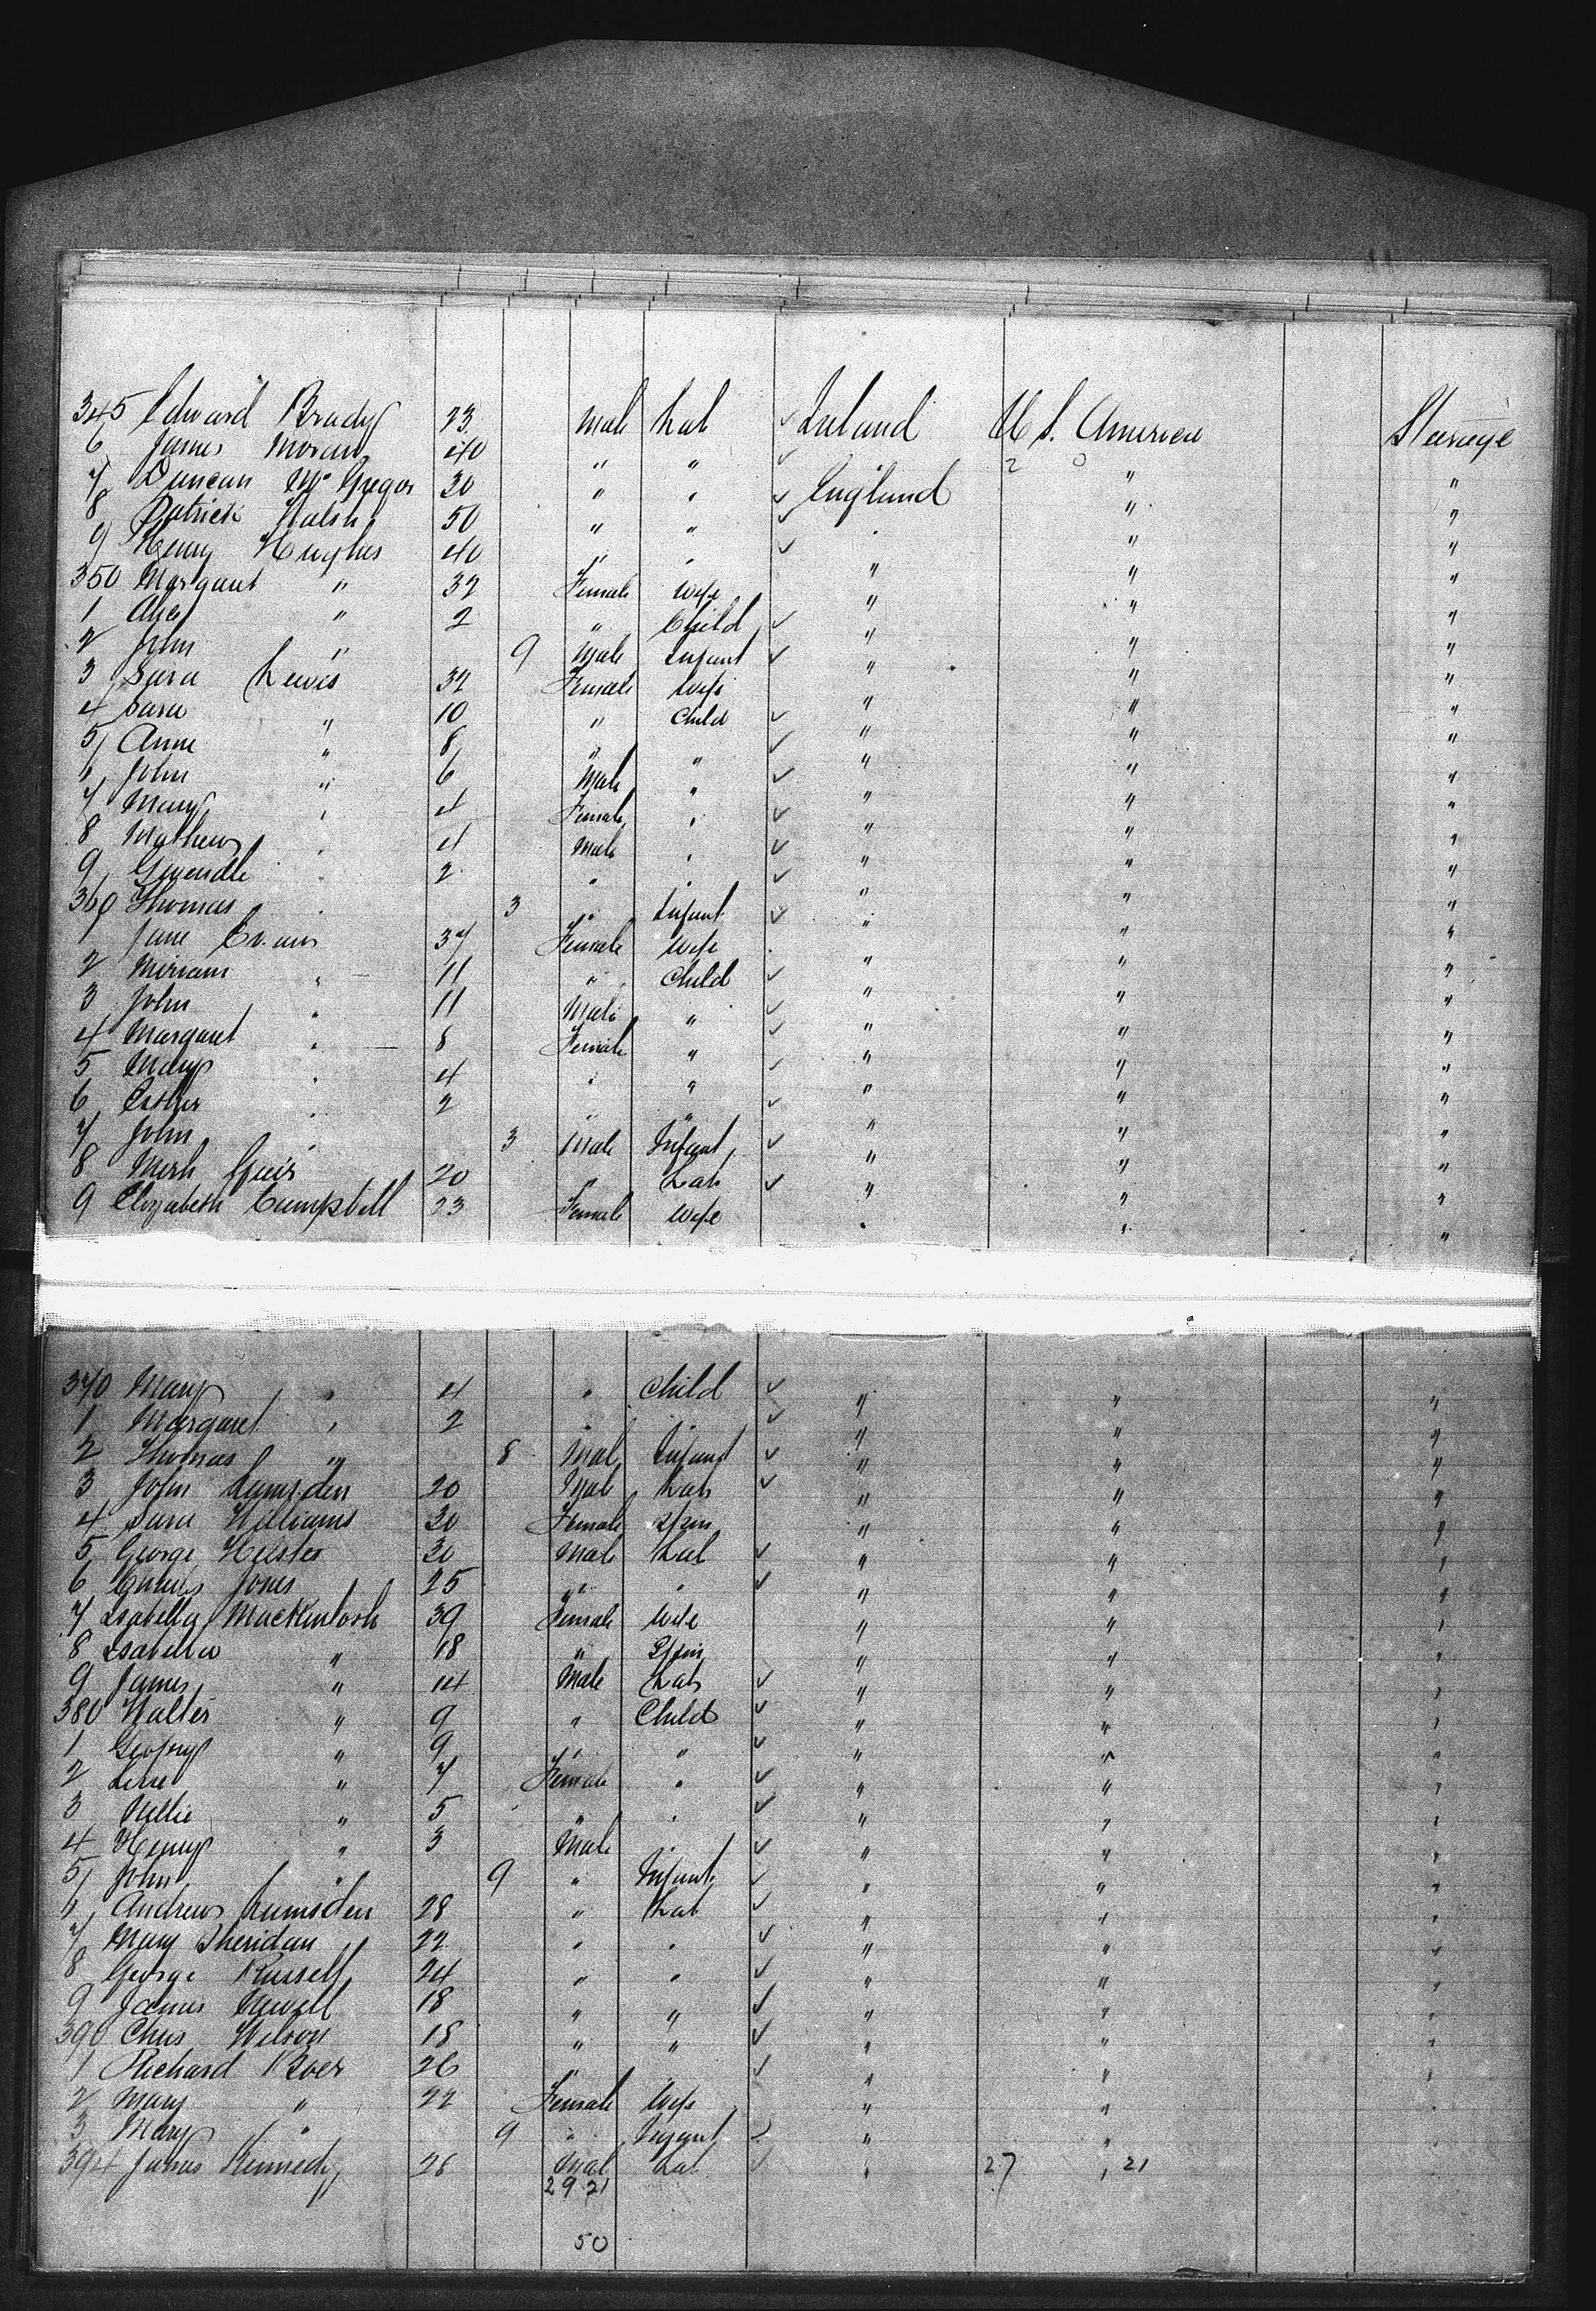 345 Edward Brady 23 Male Lab ✓ Ireland U S. America Steerage
6 James Moran 40 " " ✓ 2 0 " "
7 Duncan McGregor 30 " " ✓ England " "
8 Patrick Walsh 50 " " ✓ " " "
9 Henry Hughes 40 " " ✓ " " "
350 Margaret " 32 Female Wife " " "
1 " 2 " Child ✓ " " "
2 John " 9 Male Infant ✓ " " "
3 Sara Lewis 32 Female Wife " " "
4 Sara " 10 " Child ✓ " " "
5 Anne " 8 " " ✓ " " "
6 John " 6 Male " ✓ " " "
7 Mary " 4 Female " ✓ " " "
8 Mathew " 4 Male " ✓ " " "
9 " 2 " " ✓ " " "
360 Thomas " 3 " Infant ✓ " " "
1 Jane Evans 37 Female Wife " " "
2 Miriam " 11 " Child ✓ " " "
3 John " 11 Male " ✓ " " "
4 Margaret " 8 Female " ✓ " " "
5 Mary " 4 " " ✓ " " "
6 Esther " 2 " " ✓ " " "
7 John " 3 Male Infant ✓ " " "
8 20 " Lab ✓ " " "
9 Elizabeth Campbell 23 Female Wife " " "
370 Mary " 4 " Child ✓ " " "
1 Margaret " 2 " " ✓ " " "
2 Thomas " 8 Male Infant ✓ " " "
3 John Lumsden 20 Male Lab ✓ " " "
4 Sara Williams 20 Female Spin " " "
5 George 30 Male Lab ✓ " " "
6 Jones 25 " " ✓ " " "
7 Isabella MacKintosh 39 Female Wife " " "
8 Isabella " 18 " Spin " " "
9 James " 14 Male Lab ✓ " " "
380 Walter " 9 " Child ✓ " " "
1 " 9 " " ✓ " " "
2 " 7 Female " ✓ " " "
3 Nellie " 5 " " ✓ " " "
4 Henry " 3 Male " ✓ " " "
5 John " 9 " Infant ✓ " " "
6 Andrew Lumsden 28 " Lab ✓ " " "
7 Mary Sheridan 22 " " ✓ " " "
8 George Russell 24 " " ✓ " " "
9 James Newell 18 " " ✓ " " "
390 Chas Wilson 18 " " ✓ " " "
1 Richard 26 " ✓ " " "
2 Mary " 22 Female Wife " " "
3 Mary " 9 " Infant ✓ " " "
394 James Kennedy 26 Male Lab ✓ " 27 " 21
29 21
50